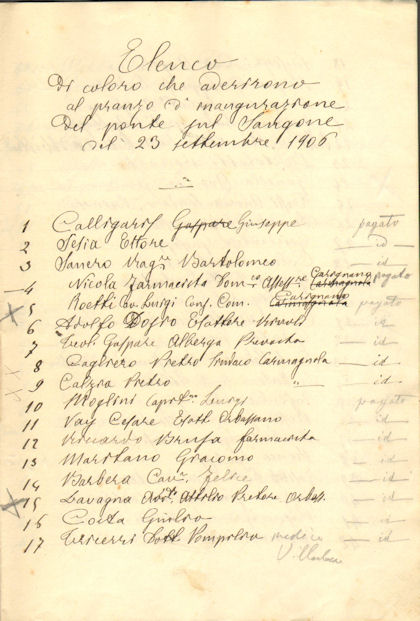 Elenco
Di coloro che aderirono
al pranzo d'inaugurazione
Del ponte sul Sangone
il 23 settembre 1906
1 Calligaris Gaspare Giuseppe pagato
2 Sesia Ettore — id —
3 Sancro Rag. Bartolomeo — id
4 Nicola Farmacista Dom.co Assess.re Carmagnola Carignano pagato
5 Roetti Cav. Luigi Cons. Com. Carmagnola Carignano pagato
6 Adolfo Esattore id
7 Gaspare Albergo id
8 Pietro Sindaco Carmagnola — id
9 Pietro „ — id
10 Moglini Luigi pagato
11 Vay Cesare Esatt. Orbassano — id
12 Brusa farmacista — id
13 Maritano Giacomo — id
14 Barbera Cav. Felice — id
15 Lavagna Avv. Attilio Pretore Orbass. — id
16 Costa Giulio — id
17 Dott. Pompeo medico — id